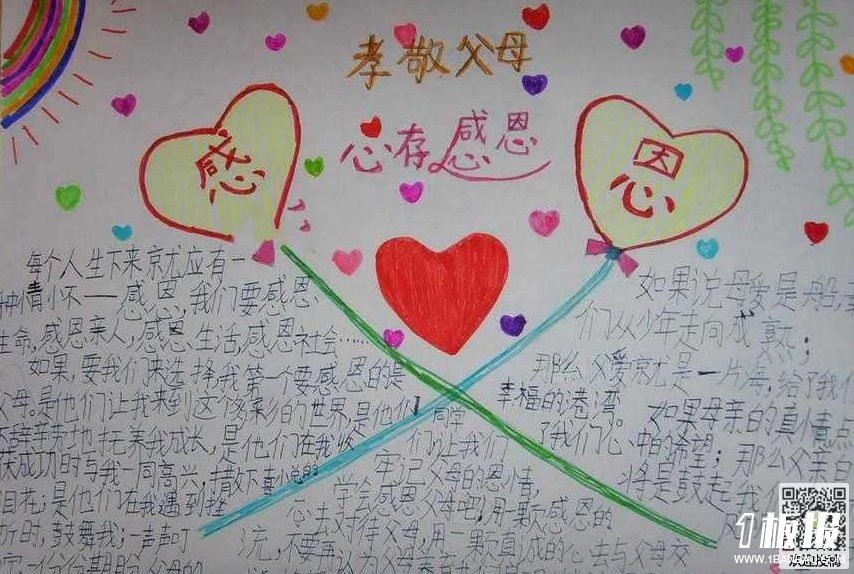 孝敬父母
心存感恩
感
恩
每个人生下来就应有一
种情怀——感恩,我们要感恩
生命,感恩亲人,感恩生活,感恩社会……
如果,要我们来选择我第一个要感恩的是
父母。是他们让我来到这个多彩的世界,是他们
辞辛劳地抚养我成长,是他们在我收
获成功时与我一同高兴,措下喜
泪花;是他们在我遇到挫
折时,鼓舞我;一声声叮
同学
们让我们
牢记父母的恩情,
学会感恩父母吧!用一颗感恩的
心去对待父母,用一颗真诚的心去与父母交
流,不要再
如果说母爱是船,
们从少年走向成熟;
那么父爱就是一片海,给了我们
幸福的港湾。如果母亲的真情点
了我们心中的希望;那么父亲
将是鼓起我们
1板报
WWW.1BANBAO.COM